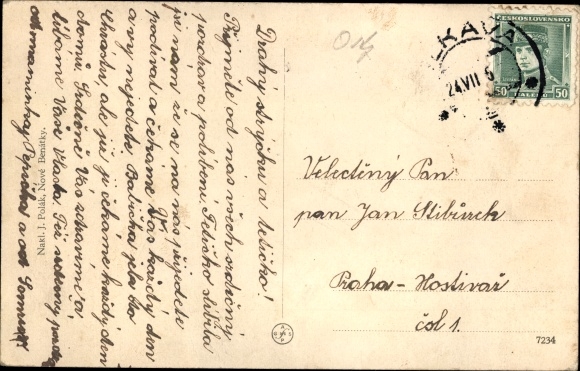 Drahý strýčku a tetičko!
Přijměte od nás všech srdečný
pozdrav a políbení. Tetičko slíbila
jsi nám že se na nás přijedete
podívat a čekáme Vás každý den
a vy nejedete Babička jela do
ale již ji čekáme každý den
domů. Srdečně Vás zdravíme a
líbáme Vaše Vlasta
od maminky
a od
Nakl. J. Polák, Nové Benátky.
KADA
24.VII
ČESKOSLOVENSKO
50 HALÉŘŮ 50
Velectěný Pan
pan Jan Stibůrek
Praha-Hostivař
čsl 1.
7234